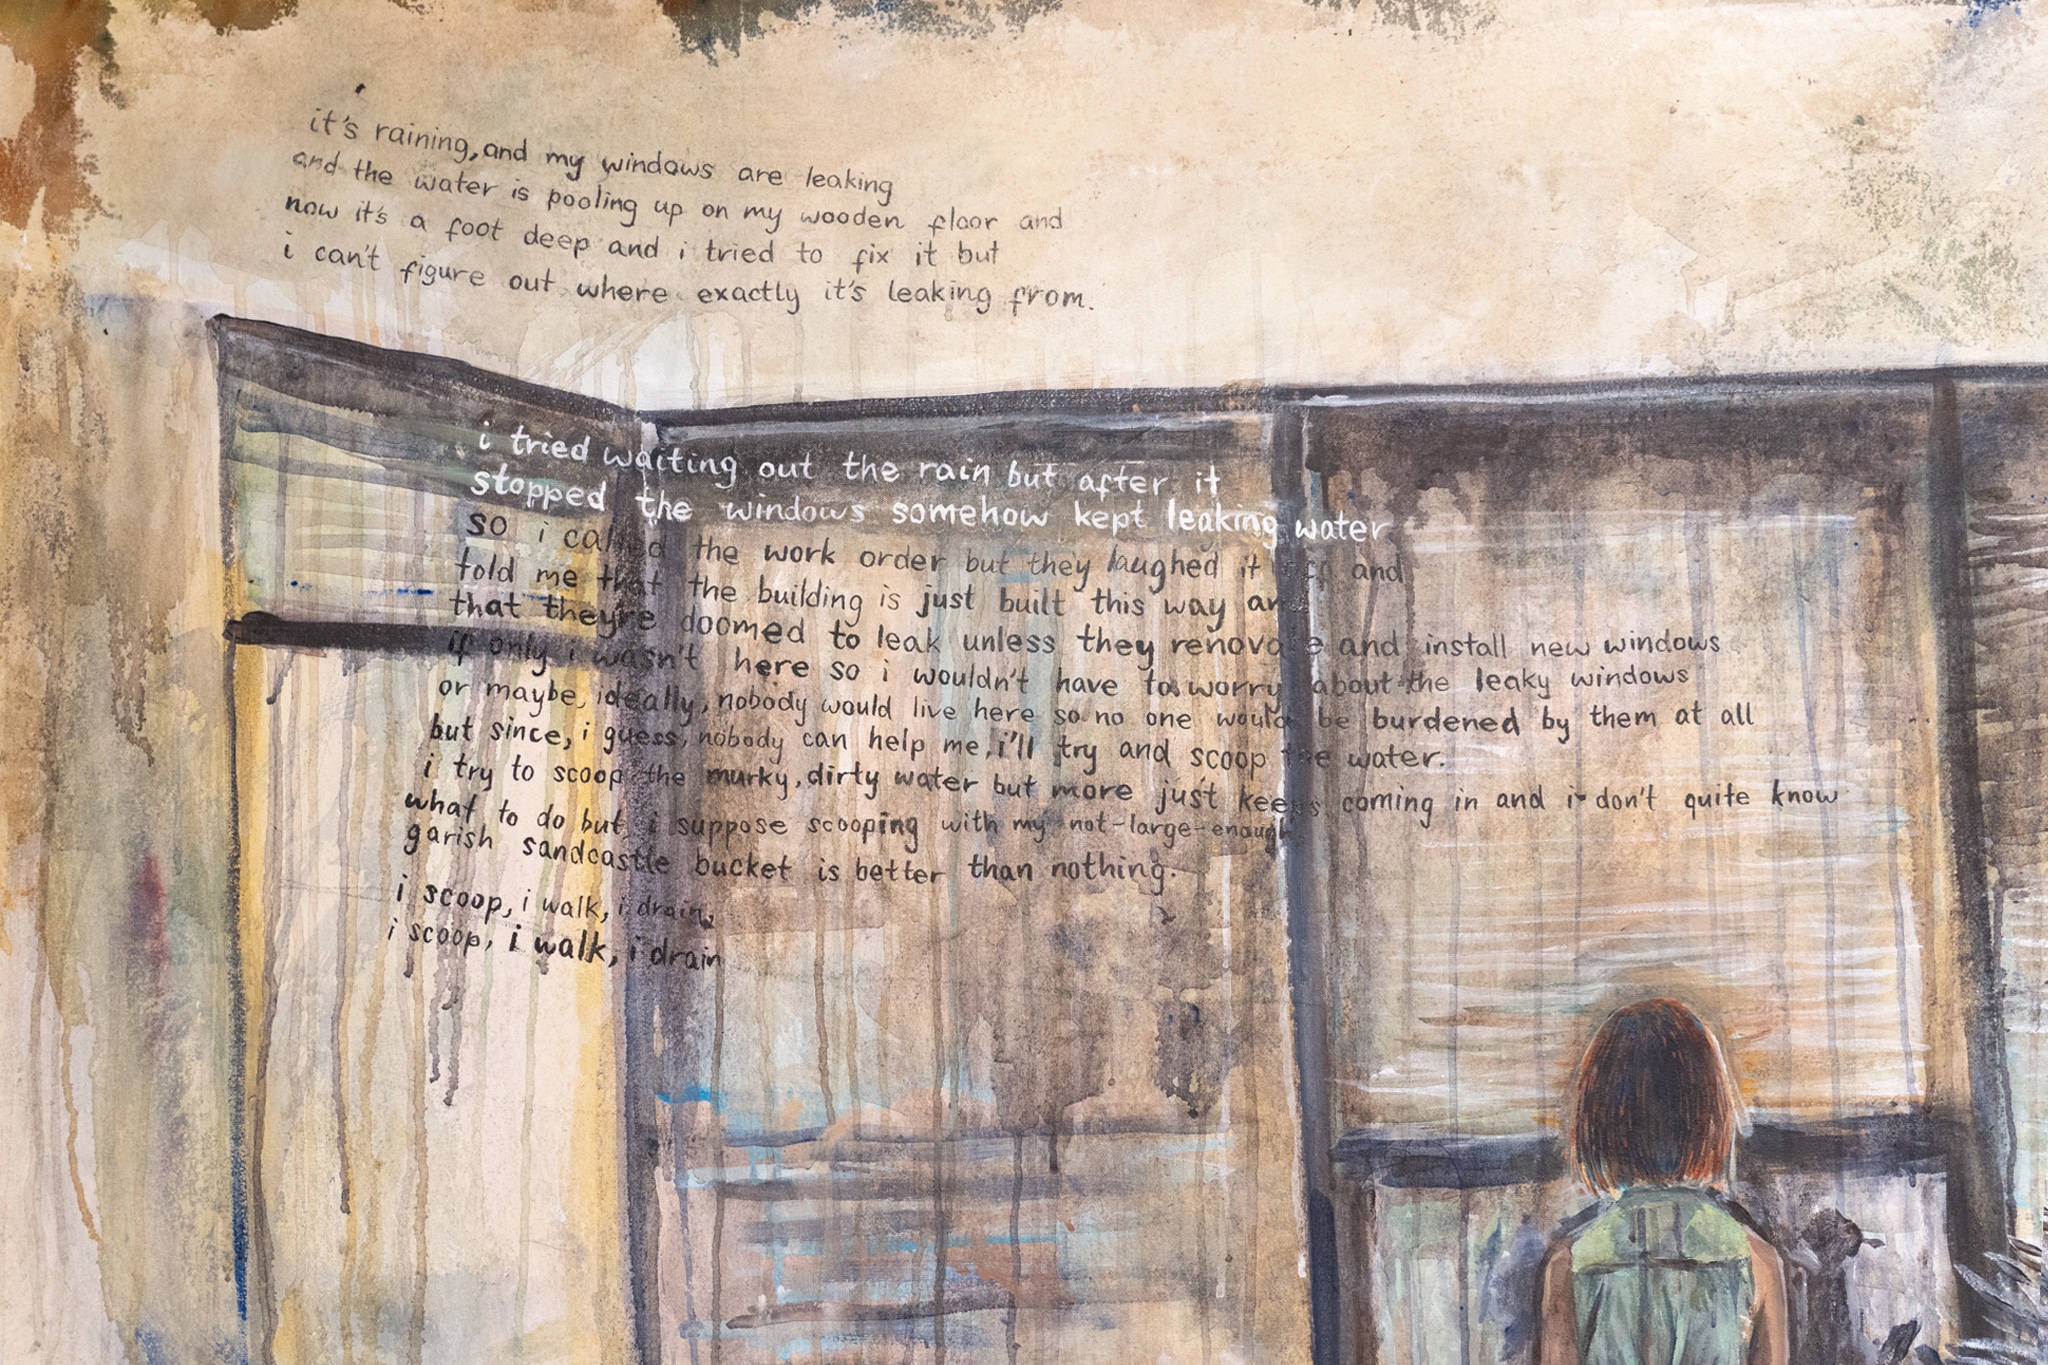 it's raining, and my windows are leaking
and the water is pooling up on my wooden floor and
now it's a foot deep and i tried to fix it but
i can't figure out where exactly it's leaking from.
i tried waiting out the rain but after it
stopped the windows somehow kept leaking water
so i called the work order but they laughed it off and
told me that the building is just built this way and
that they're doomed to leak unless they renovate and install new windows
if only i wasn't here so i wouldn't have to worry about the leaky windows
or maybe, ideally, nobody would live here so no one would be burdened by them at all
but since, i guess, nobody can help me, i'll try and scoop the water.
i try to scoop the murky, dirty water but more just keeps coming in and i don't quite know
what to do but, i suppose scooping with my not-large-enough
garish sandcastle bucket is better than nothing.
i scoop, i walk, i drain,
i scoop, i walk, i drain